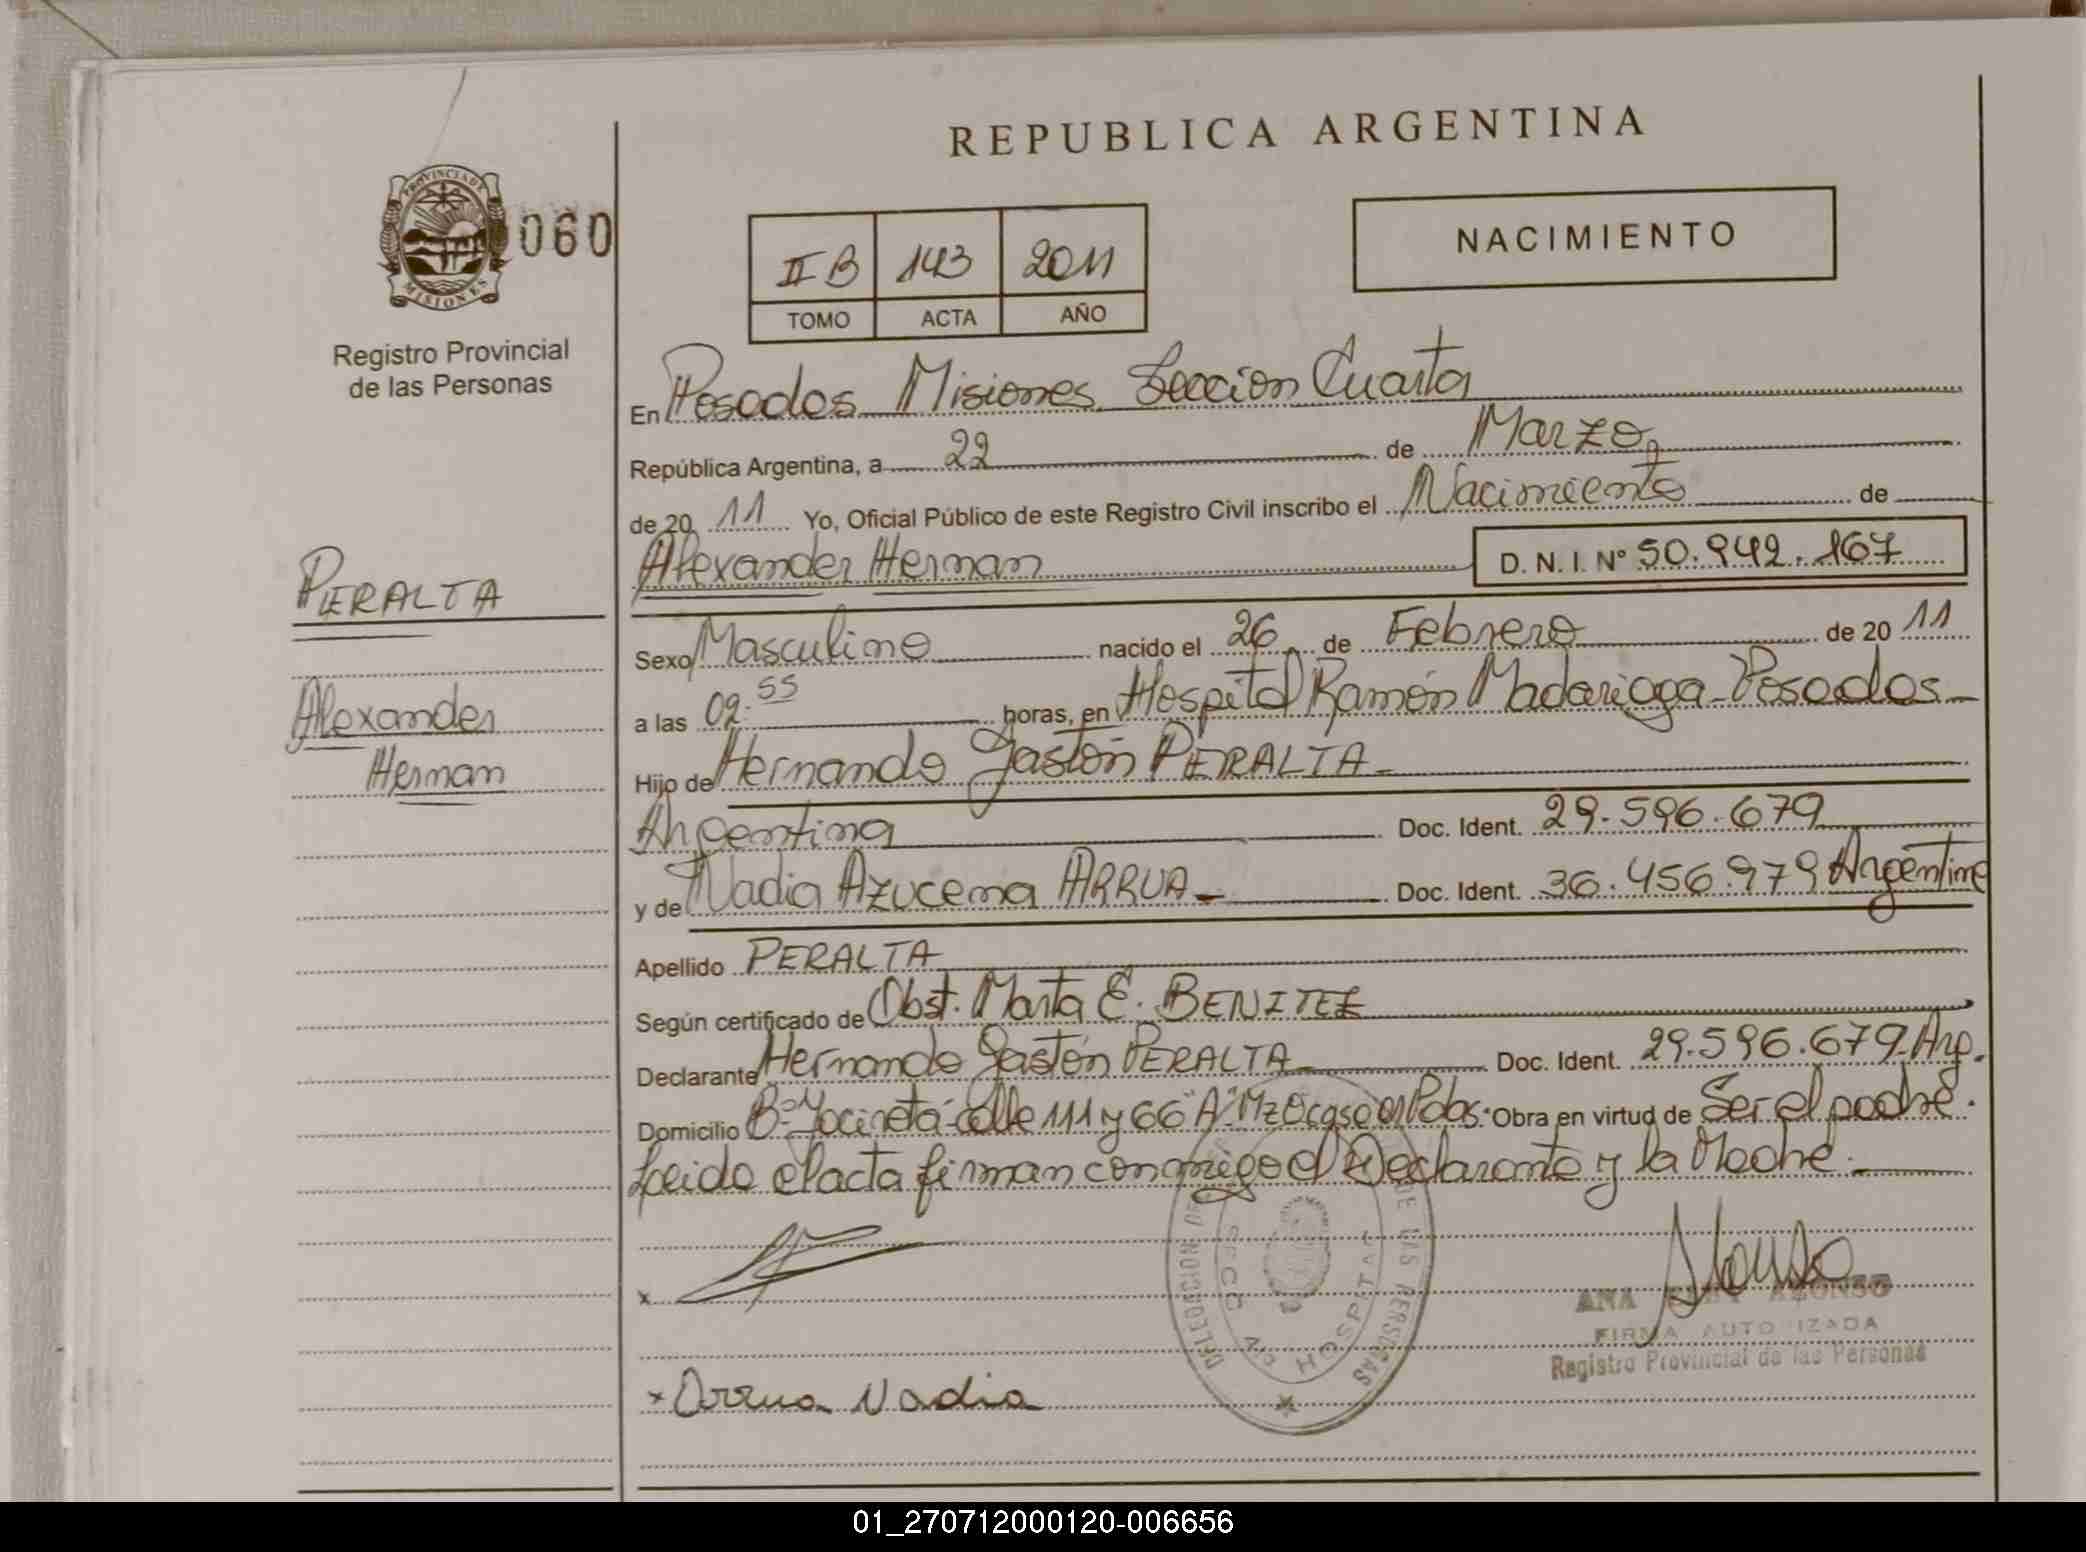 REPUBLICA ARGENTINA
PROVINCIA DE
MISIONES
060
Registro Provincial
de las Personas
II B 143 2011
TOMO ACTA AÑO
NACIMIENTO
En Posadas Misiones Sección Cuarta
República Argentina, a 22 de Marzo
de 20 11 Yo, Oficial Público de este Registro Civil inscribo el Nacimiento de
Alexander Hernan D. N. I. Nº 50.942.167
PERALTA
Alexander
Hernan
Sexo Masculino nacido el 26 de Febrero de 20 11
a las 02:55 horas, en Hospital Ramón Madariaga - Posadas
Hijo de Hernando Gastón PERALTA
Argentina Doc. Ident. 29.596.679
y de Nadia Azucena ARRUA Doc. Ident. 36.456.979 Argentina
Apellido PERALTA
Según certificado de Obst. Marta E. BENITEZ
Declarante Hernando Gastón PERALTA Doc. Ident. 29.596.679 Arg.
Domicilio Bº Yacireta - calle 111 y 66 "A" Mz casa Pdas. Obra en virtud de Ser el padre.
Leida el acta firman conmigo el Declarante y la Madre.
DE LAS PERSONAS
HOSPITAL
x
ANA ALONSO
FIRMA AUTORIZADA
Registro Provincial de las Personas
x Arrua Nadia
01_270712000120-006656